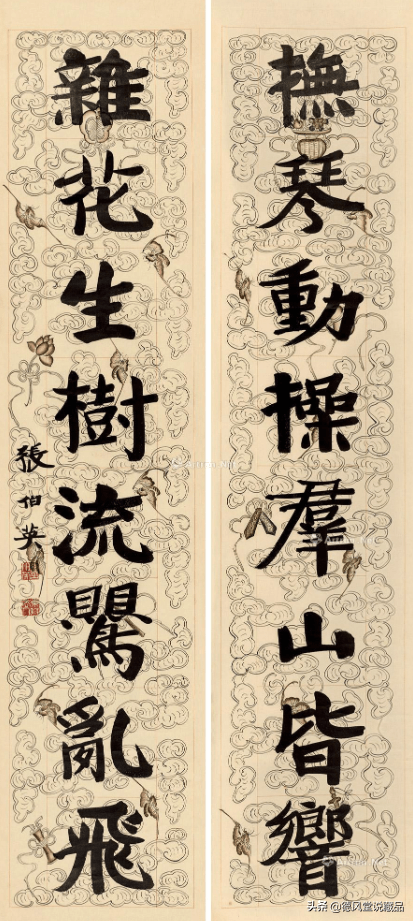 撫琴動操羣山皆響
雜花生樹流鸎亂飛
張伯英
头条 @德风堂说藏品